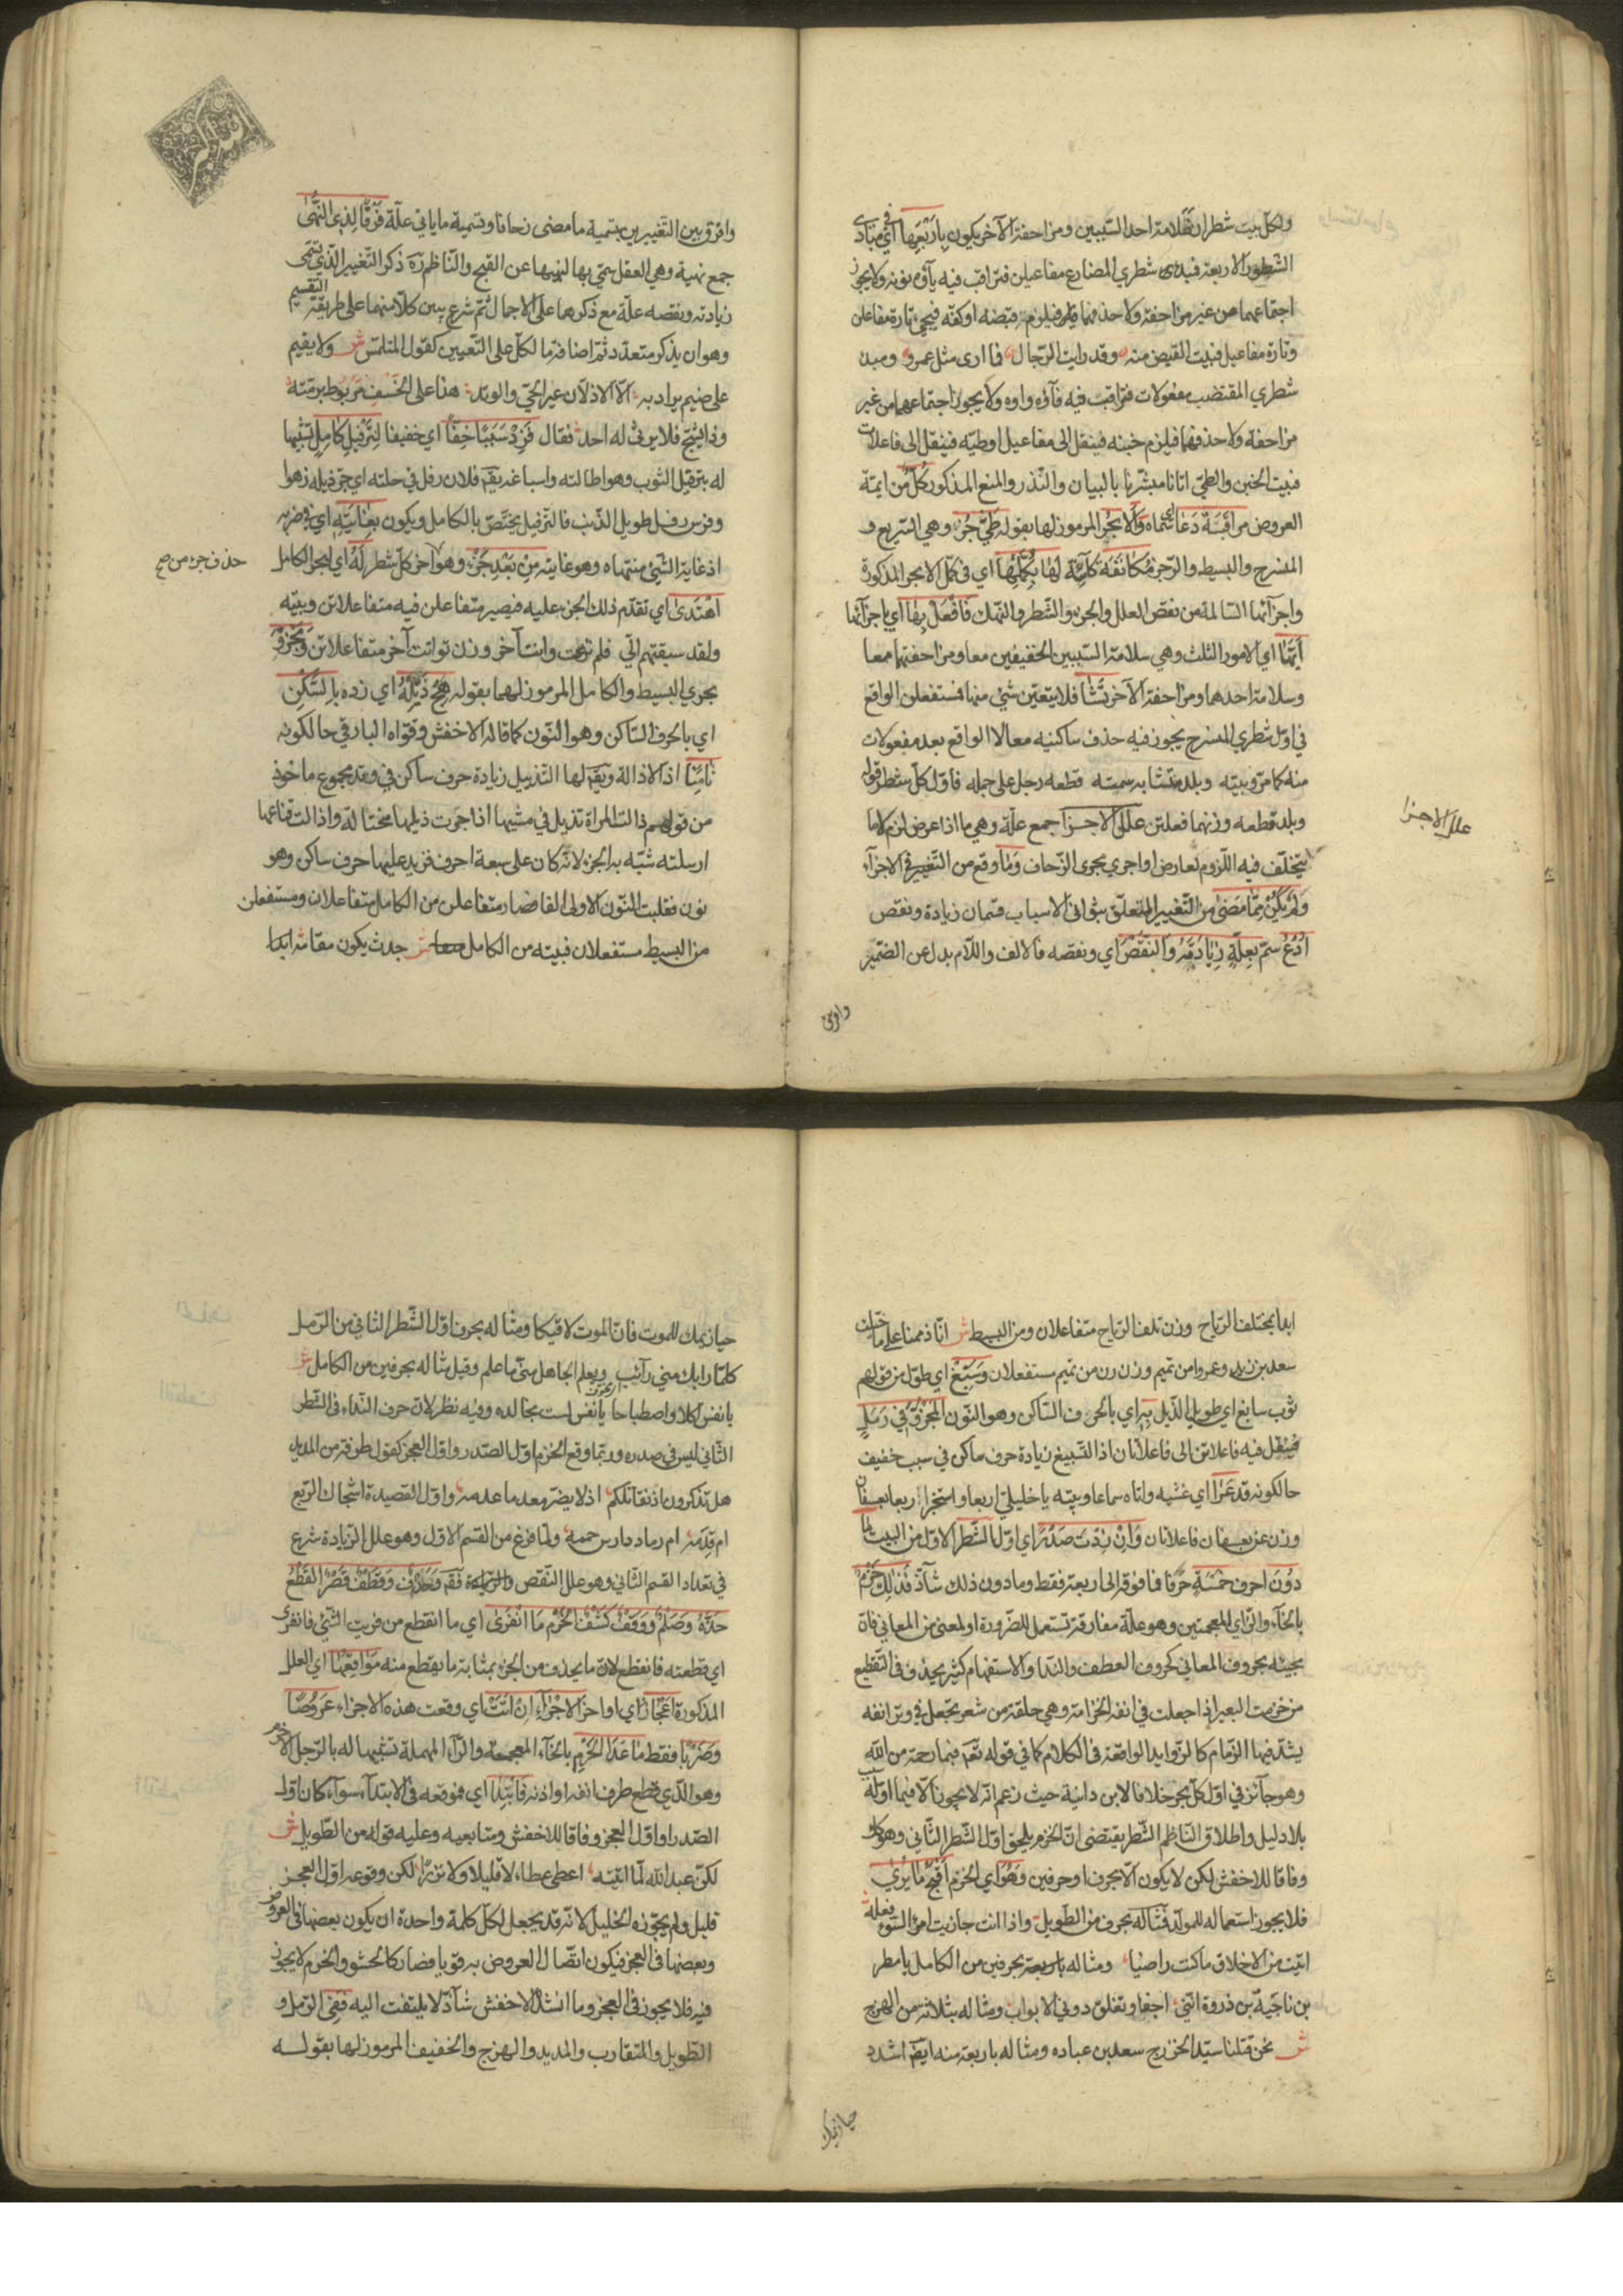 ولكل بيت شطران فسلامة احد السببين ومزاحفة الآخر يكون بأربعها اي في مبادى
الشطور الاربعة فبدى شطري المضارع مفاعيلن فتراقب فيه ياؤه نونه ولا يجوز
اجتماعهما من غير مزاحفة ولا حذفهما قبضه او كفه فيجى تارة مفاعلن
وتارة مفاعيل فبيت القبض منه وقد رايت الرجال فما ارى مثل عمرو ومبد
شطري المقتضب مفعولات فتراقب فيه فاؤه واوه ولا يجوز اجتماعهما من غير
مزاحفة ولا حذفهما فيلزم خبنه فينقل الى مفاعيل او طيه فينقل الى فاعلات
فبيت الخبن والطي اتانا مبشرنا بالبيان والنذر والمنع المذكور كل من ايمة
العروض مراقبة دعا اي سماه والابحر المرموز لها بقوله طي جز وهي السريع و
المنسرح والبسيط والرجز مكانفة كائنة لها بكلها اي في كل الابحر المذكورة
واجزائها السالمة من نقص العلل والجزء والشطر والنهك فافعل بها اي باجزائها
ايها اي الامور الثلث وهي سلامة السببين الخفيفين معا ومزاحفتهما معا
وسلامة احدهما ومزاحفة الآخر تشا فلا يتعين شئ منها فمستفعلن الواقع
في اول شطري المنسرح يجوز فيه حذف ساكنيه معا لا الواقع بعد مفعولات
منه كما مر وبيته وبلد متشابه سمته قطعه رجل على جمله فاول كل شطر قوله
وبلد قطعه وزنهما فعلتن علل الاجزا جمع علة وهي ما اذا عرض لزم لا ما
يتخلف فيه اللزوم لعارض او اجري مجرى الزحاف وما وقع من التغيير في الاجزاء
ولم يكن مما مضى من التغيير المتعلق بثواني الاسباب قسمان زيادة ونقص
ادع سم بعلة زيادته والنقص اي ونقصه فالالف واللام بدل عن الضمير
علل الاجزا
وافرق
وافرق بين التغييرين بتسمية ما مضى زحافا وتسمية ما ياتي علة فرقا لذي النهى
جمع نهية وهي العقل سمى بها لنهيها عن القبح والناظم ره ذكر التغيير الذي سمى
زيادته ونقصه علة مع ذكرهما على الاجمال ثم شرع يبين كلا منهما على طريقة التقسيم
وهو ان يذكر متعدد ثم اضافة ما لكل على التعيين كقول المتلمس ش ولا يقيم
على ضيم يراد به الا الاذلان عير الحي والوتد هذا على الخسف مربوط برمته
وذا يشج فلا يرثى له احد فقال فزد سببا خفا اي خفيفا لترفيل كامل تشبيها
له بترفيل الثوب وهو اطالته واسباغه يقم فلان رفل في حلته اي جر ذيله زهوا
وفرس رفل طويل الذنب فالترفيل يختص بالكامل ويكون بغايته اي ضربه
اذ غاية الشئ منتهاه وهو غايته من بعد جزء وهو آخر كل شطر له اي لبحر الكامل
حذف جزء من ص
اهتدى اي تقدم ذلك الجزء عليه فيصير متفاعلن فيه متفاعلاتن وبيته
ولقد سبقتهم الي فلم نزعت وانت آخر وزن نوانت آخر متفاعلاتن ومجزو
بحري البسيط والكامل المرموز لهما بقوله هج ذيله اي زده بالسكن
اي بالحرف الساكن وهو النون كما قاله الاخفش وقواه البارقي حالكونه
ثامنا اذ الاذالة ويقم لها التذييل زيادة حرف ساكن في وتد مجموع ماخوذ
من قولهم ذالت المراة تذيل في مشيها اذا جرت ذيلها مختالة واذالت قناعها
ارسلته شبه به الجزء لانه كان على سبعة احرف فزيد عليها حرف ساكن وهو
نون فقلبت النون الاولى الفا فصار متفاعلن من الكامل متفاعلان ومستفعلن
من البسيط مستفعلان فبيته من الكامل ش جدث يكون مقامه ابدا
ابدا بمختلف الرياح وزن تلف الرياح متفاعلان ومن البسيط ش انا ذممنا على ما خيلت
سعد بن زيد وعمروا من تميم وزن رن من تميم مستفعلان وسبغ اي طول من قولهم
ثوب سابغ اي طويل الذيل به اي بالحرف الساكن وهو النون المجزو في رمل
فينقل فيه فاعلاتن الى فاعلاتان اذ التسبيغ زيادة حرف ساكن في سبب خفيف
حالكونه قد عرا اي غشيه واتاه سماعا وبيته يا خليلي اربعا واستخبرا ربعا بعسفان
وزن عن بعسفان فاعلاتان وان زدت صدر اي اول الشطر الاول من البيت ما
دون احرف خمسة حرفا فما فوقه الى اربعة فقط وما دون ذلك شاذ فذلك خزم
بالخاء والزاي المعجمتين وهو علة مفارقة تستعمل للضرورة او لمعنى من المعاني فان
مجيئه بحروف المعاني كحروف العطف والندا والاستفهام كثير يحذف في التقطيع
من خزمت البعير اذا جعلت في انفه الخزامة وهي حلقة من شعر تجعل في وترة انفه
يشد فيها الزمام كالزوايد الواقعة في الكلام كما في قوله تعم فبما رحمة من الله
وهو جائز في اول كل بحر خلافا لابن دانية حيث زعم انه لا يجوز الا فيما اوله سبب
بلا دليل واطلاق الناظم الشطر يقتضى ان الخزم يلحق اول الشطر الثاني وهو كك
وفاقا للاخفش لكن لا يكون الا بحرف او حرفين وهو اي الخزم اقبح ما يرى
فلا يجوز استعماله للمولد فمثاله بحرف من الطويل واذا انت جازيت امرا السوء فعله
اتيت من الاخلاق ما كنت راضيا ومثاله بحرفين من الكامل يا مطر
بن ناجية بن ذروة انني اجفا وتغلق دوني الابواب ومثاله بثلاثة من الهزج
ش نحن قتلنا سيد الخزرج سعد بن عباده ومثاله باربعة منه ايضم اشدد
حيازيمك
حيازيمك للموت فان الموت لاقيكا ومثاله بحرف اول الشطر الثاني من الرمل
كلما رابك مني رائب ويعلم الجاهل مني ما علم وقيل مثاله بحرفين من الكامل ش
يا نفس اكلا واضطجاعا يا نفس لست بخالده وفيه نظر لان حرف النداء في الشطر
الثاني ليس في صدره وربما وقع الخزم اول الصدر واول العجز كقول طرفة من المديد
هل تذكرون اذ نقاتلكم اذ لا يضر معدما عدمه واول القصيدة اشجاك الربع
ام قدمه ام رماد دارس حممه ولما فرغ من القسم الاول وهو علل الزيادة شرع
في تعداد القسم الثاني وهو علل النقص فقم وحذف وقطف قصر القطع
حذه وصلم ووقف كشف الخرم ما انفرى اي ما انقطع من فريت الشئ فانفرى
اي قطعته فانقطع لان ما يحذف من الجزء بمثابة ما يقطع منه مواقعها اي العلل
المذكورة اعجاز اي اواخر الاجزاء ان اتت اي وقعت هذه الاجزاء عروضا
وضربا فقط ما عدا الخرم بالخاء المعجمة والراء المهملة تشبيها له بالرجل الاخرم
وهو الذي قطع طرف انفه او اذنه فابتدا اي فموقعه في الابتداء سواء كان اول
الصدر او اول العجز وفاقا للاخفش ومتابعيه وعليه قوله من الطويل ش
لكن عبد الله لما اتيته اعطى عطاء لا قليلا ولا نزرا لكن وقوعه اول العجز
قليل ولم يجوزه الخليل لانه قد يجعل لكل كلمة واحدة ان يكون بعضها في العروض
وبعضها في العجز فيكون اتصال العروض به قويا فصار كالحشو والخرم لا يجوز
فيه فلا يجوز في العجز وما انشده الاخفش شاذ لا يلتفت اليه ففي الرمل و
الطويل والمتقارب والمديد والهزج والخفيف المرموز لها بقوله